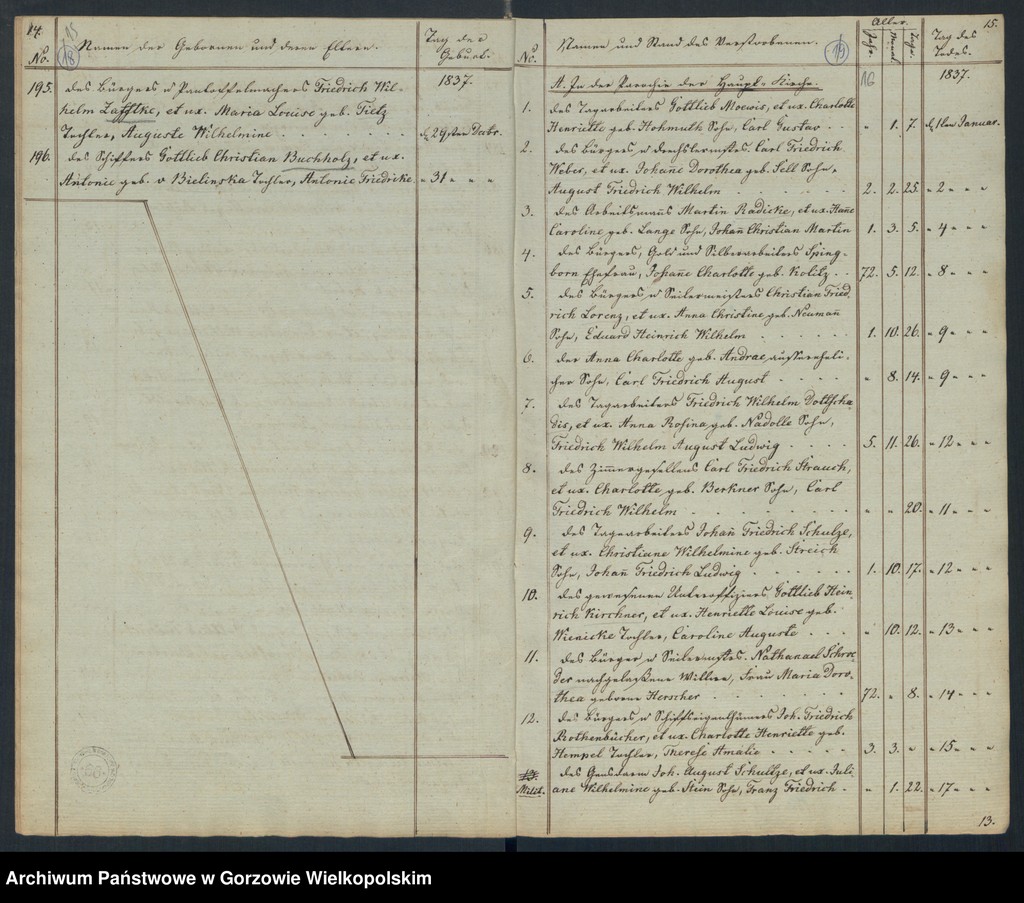 14.
15
18
No.
Namen der Gebornen und deren Eltern.
Tag der Geburt.
1837.
195. des Bürgers u Pantoffelmachers Friedrich Wil-
helm Zafftke, et ux. Maria Louise geb. Tietz
Tochter, Auguste Wilhelmine d. 29sten Decbr.
196. des Schiffers Gottlieb Christian Buchholz, et ux.
Antonie geb. v Bielinska Tochter, Antonie Friedricke. " 31 " " "
15.
No.
Namen und Stand des Verstorbenen.
19
Alter.
Jahr. Monat. Tage.
Tag des Todes.
A. In der Parochie der Haupt-Kirche.
16
1837.
1. des Tagarbeiters Gottlieb Moewis, et ux. Charlotte
Henriette geb. Hohmuth Sohn, Carl Gustav " 1. 7. d. 1ten Januar.
2. des Bürgers, u Drechslermstrs. Carl Friedrich
Weber, et ux. Johañe Dorothea geb. Sell Sohn,
August Friedrich Wilhelm 2. 2. 25. " 2 " " "
3. des Arbeitsmañs Martin Radicke, et ux. Hañe
Caroline geb. Lange Sohn, Johañ Christian Martin 1. 3. 5. " 4 " " "
4. des Bürgers, Gold und Silberarbeiters Spring-
born Ehefrau, Johañe Charlotte geb. Kolitz 72. 5. 12. " 8 " " "
5. des Bürgers u Seilermeisters Christian Fried-
rich Lorenz, et ux. Anna Christine geb. Neumañ
Sohn, Eduard Heinrich Wilhelm 1. 10. 26. " 9 " " "
6. der Anna Charlotte geb. Andrae, außereheli-
cher Sohn, Carl Friedrich August " 8. 14. " 9 " " "
7. des Tagarbeiters Friedrich Wilhelm Dottscha-
dis, et ux. Anna Rosina geb. Nadolle Sohn,
Friedrich Wilhelm August Ludwig 5. 11. 26. " 12 " " "
8. des Zimmergesellens Carl Friedrich Strauch,
et ux. Charlotte geb. Berkner Sohn, Carl
Friedrich Wilhelm " " 20. " 11 " " "
9. des Tagearbeiters Johañ Friedrich Schulze,
et ux. Christiane Wilhelmine geb. Streich
Sohn, Johañ Friedrich Ludwig 1. 10. 17. " 12 " " "
10. des gewesenen Unteroffiziers Gottlieb Hein-
rich Kirchner, et ux. Henriette Louise geb.
Wienicke Tochter, Caroline Auguste " 10. 12. " 13 " " "
11. des Bürger u Seilermstrs. Nathanael Schroe-
der nachgelaßene Wittwe, Frau Maria Doro-
thea geborne Herscher 72. " 8. " 14 " " "
12. des Bürgers u Schiffseigenthümers Joh. Friedrich
Rothenbücher, et ux. Charlotte Henriette geb.
Hempel Tochter, Therese Amalie 3. 3. " " 15 " " "
Milit. des Gensdarm Joh. August Schultze, et ux. Juli-
ane Wilhelmine geb. Stein Sohn, Franz Friedrich " 1. 22. " 17 " " "
13.
Archiwum Państwowe w Gorzowie Wielkopolskim